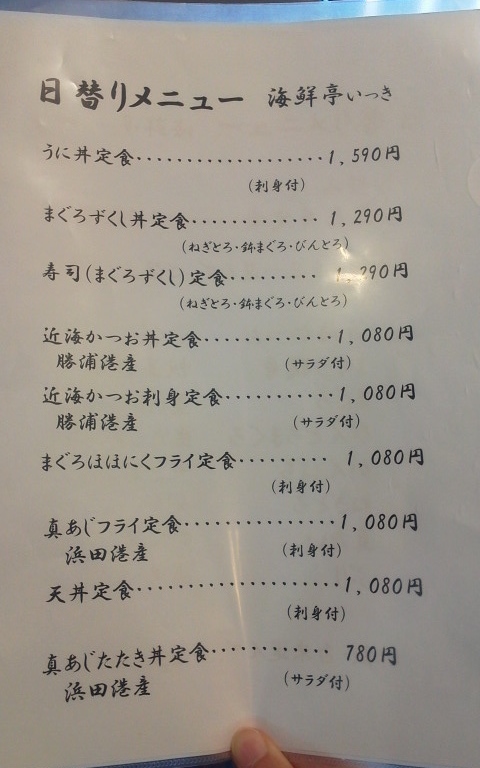 日替りメニュー 海鮮亭いっき
うに丼定食・・・・・・・・・・・・・・・・・・・1,590円
（刺身付）
まぐろずくし丼定食・・・・・・・・・・・・・1,290円
（ねぎとろ・鉢まぐろ・びんとろ）
寿司（まぐろずくし）定食・・・・・・・・・1,290円
（ねぎとろ・鉢まぐろ・びんとろ）
近海かつお丼定食・・・・・・・・・・・・・1,080円
勝浦港産 （サラダ付）
近海かつお刺身定食・・・・・・・・・・・1,080円
勝浦港産 （サラダ付）
まぐろほほにくフライ定食・・・・・・・・・1,080円
（刺身付）
真あじフライ定食・・・・・・・・・・・・・・・1,080円
浜田港産 （刺身付）
天丼定食・・・・・・・・・・・・・・・・・・・・1,080円
（刺身付）
真あじたたき丼定食・・・・・・・・・・・・780円
浜田港産 （サラダ付）